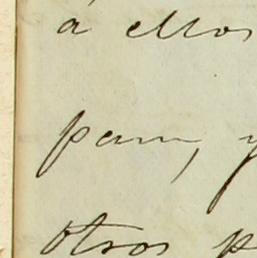 á ellos
pam, y
otros p